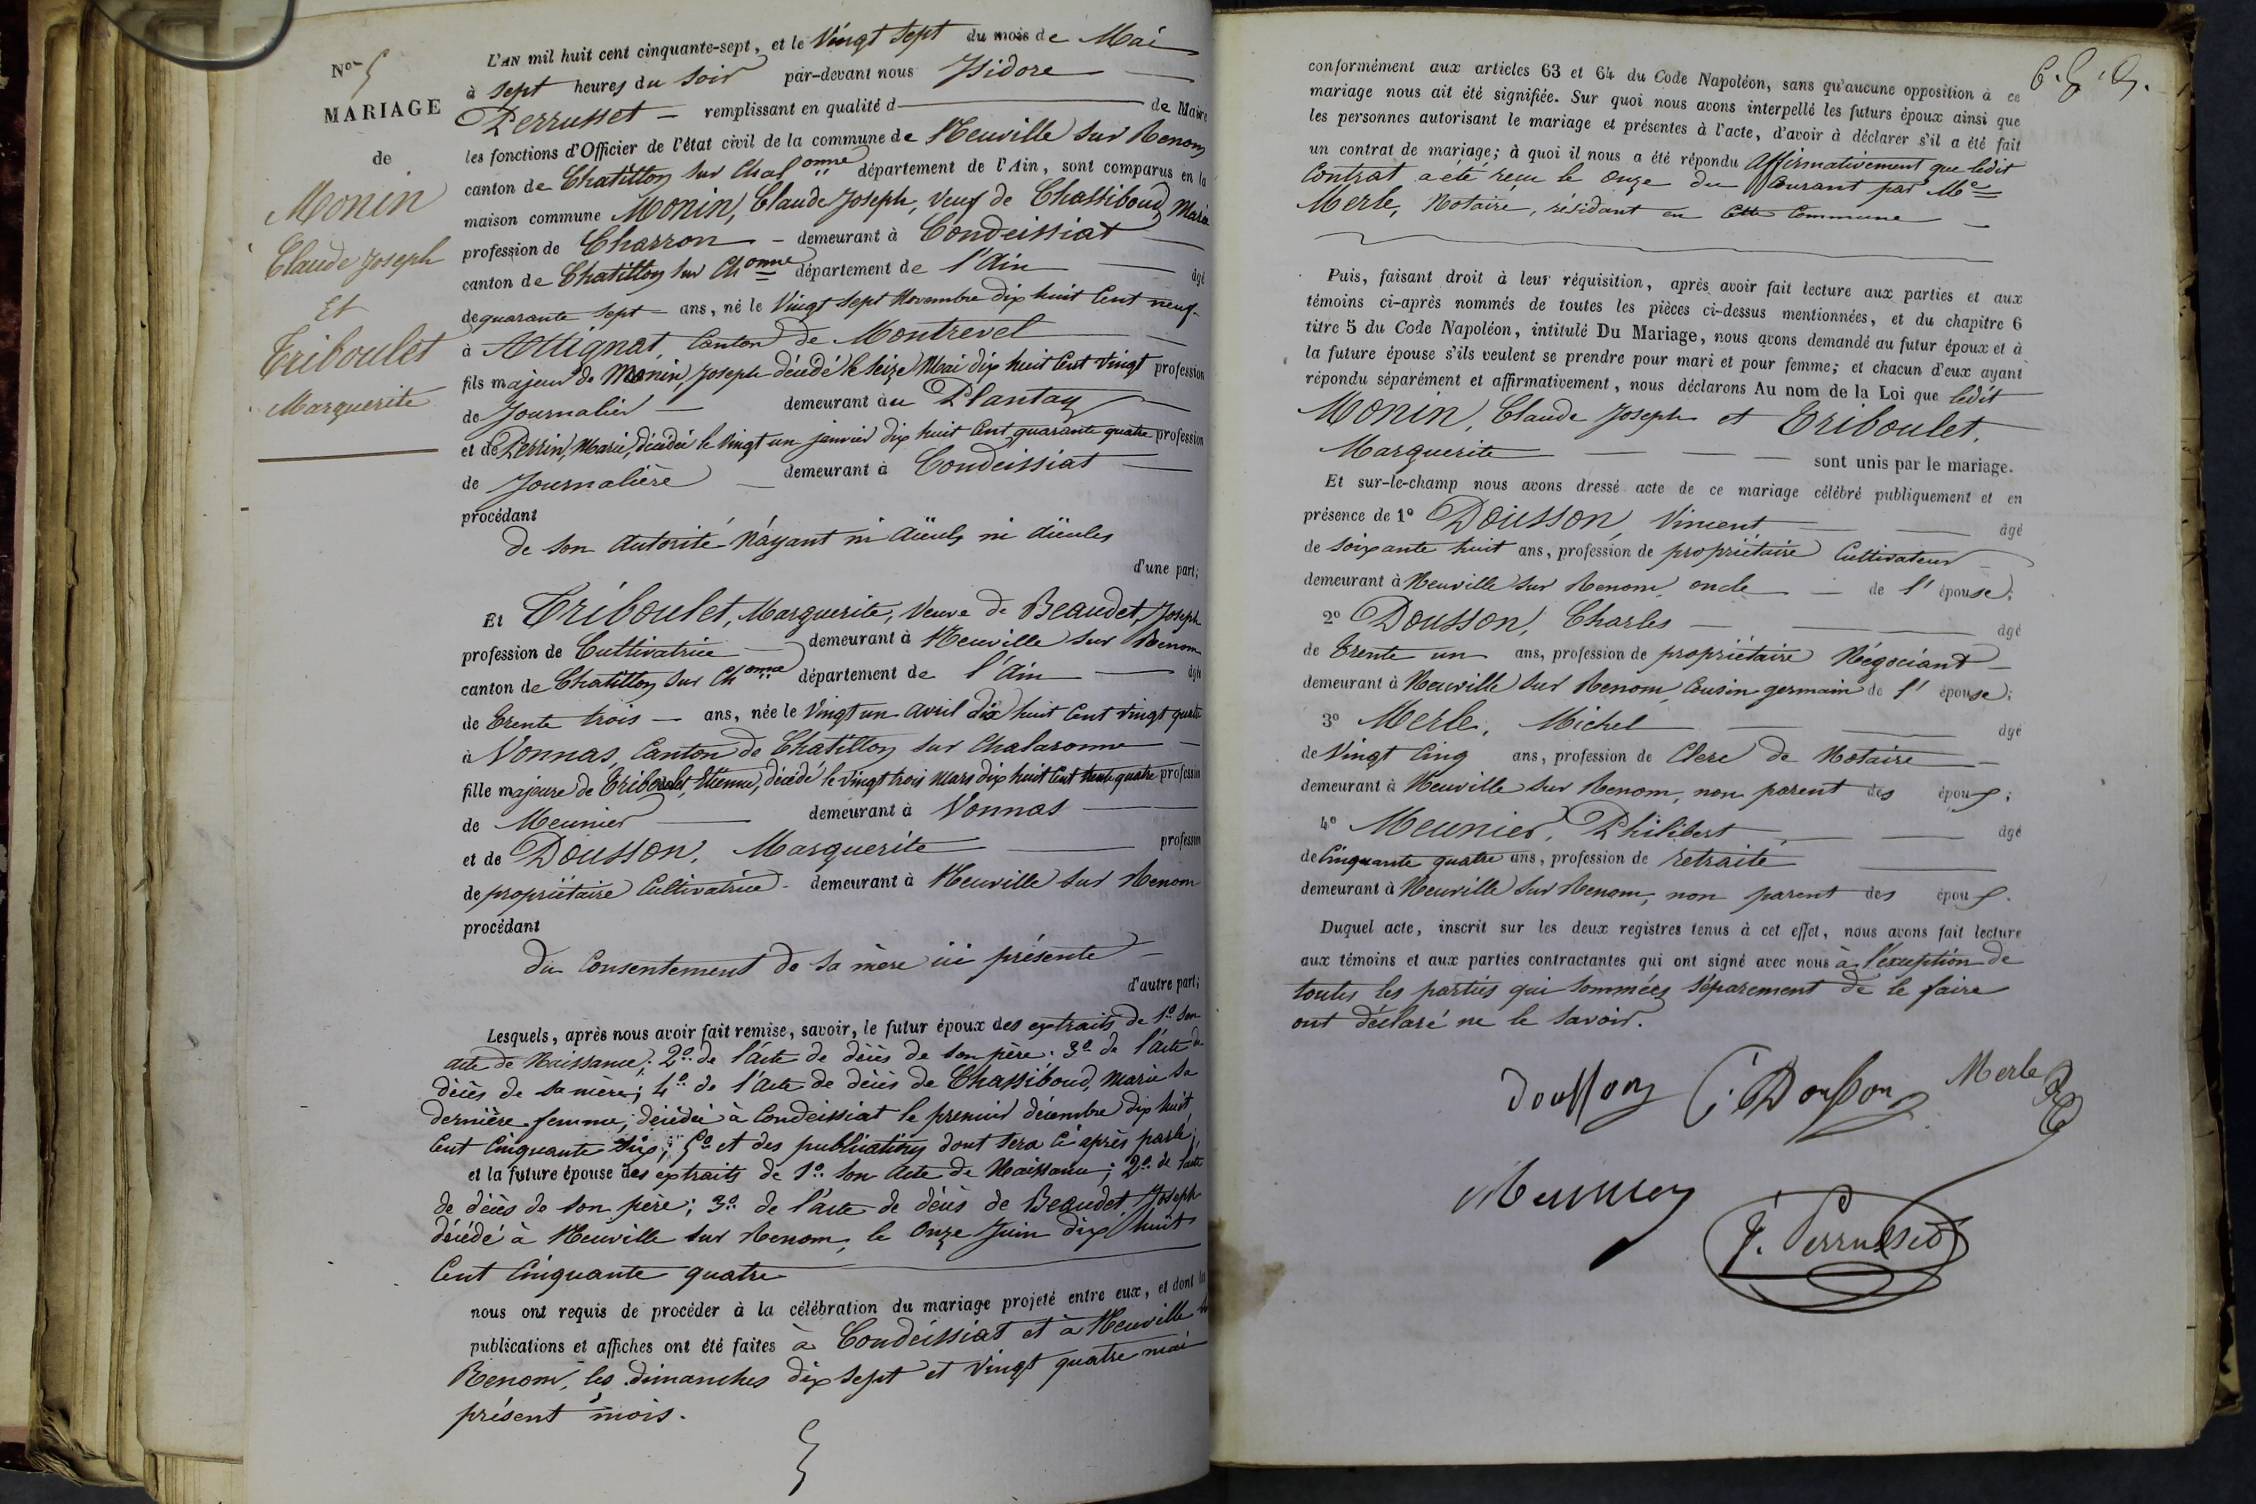 No 5
MARIAGE
de
Monin
Claude Joseph
Et
Triboulet
Marguerite
L'AN mil huit cent cinquante-sept, et le Vingt Sept du mois de Mai
à Sept heures du Soir par-devant nous Isidore
Perrusset remplissant en qualité d de Maire
les fonctions d'Officier de l'état civil de la commune de Neuville sur Renom
canton de Chatillon sur Chalonne département de l'Ain, sont comparus en la
maison commune Monin, Claude Joseph, Veuf de Chassiboud, Marie
profession de Charron - demeurant à Condeissiat
canton de Chatillon sur Chonne département de l'Ain âgé
de quarante sept ans, né le Vingt sept Novembre dix huit Cent neuf
à Attignat, Canton de Montrevel
fils majeur de Monin, Joseph décédé le seize Mai dix huit Cent vingt profession
de Journalier demeurant au Plantay
et de Perrin, Marie, décédée le vingt un janvier dix huit Cent quarante quatre profession
de Journalière demeurant à Condeissiat
procédant
de son autorité n'ayant ni aïeuls ni aïeules
d'une part;
Et Triboulet, Marguerite, Veuve de Beaudet, Joseph
profession de Cultivatrice demeurant à Neuville sur Renom
canton de Chatillon sur Chonne département de l'Ain âgée
de Trente trois ans, née le Vingt un avril dix huit Cent vingt quatre
à Vonnas, Canton de Chatillon sur Chalaronne
fille majeure de Triboulet, Etienne, décédé le vingt trois Mars dix huit Cent trente quatre profession
de Meunier demeurant à Vonnas
et de Dousson, Marguerite profession
de propriétaire Cultivatrice - demeurant à Neuville sur Renom
procédant
du Consentement de sa mère ici présente
d'autre part;
Lesquels, après nous avoir fait remise, savoir, le futur époux des extraits de 1o son
acte de Naissance; 2o de l'acte de décès de son père; 3o de l'acte de
décès de sa mère; 4o de l'acte de décès de Chassiboud, Marie sa
dernière femme, décédée à Condeissiat le premier décembre dix huit
Cent Cinquante six; 5o et des publications dont sera ci après parlé;
et la future épouse des extraits de 1o son acte de Naissance; 2o de l'acte
de décès de son père; 3o de l'acte de décès de Beaudet, Joseph
décédé à Neuville sur Renom, le Onze Juin dix huit
Cent Cinquante quatre
nous ont requis de procéder à la célébration du mariage projeté entre eux, et dont les
publications et affiches ont été faites à Condeissiat et à Neuville sur
Renom, les dimanches dix sept et vingt quatre mai
présent mois.
conformément aux articles 63 et 64 du Code Napoléon, sans qu'aucune opposition à ce
mariage nous ait été signifiée. Sur quoi nous avons interpellé les futurs époux ainsi que
les personnes autorisant le mariage et présentes à l'acte, d'avoir à déclarer s'il a été fait
un contrat de mariage; à quoi il nous a été répondu Affirmativement que ledit
Contrat a été reçu le Onze du Courant par Me
Merle, Notaire, résidant en Cette Commune
Puis, faisant droit à leur réquisition, après avoir fait lecture aux parties et aux
témoins ci-après nommés de toutes les pièces ci-dessus mentionnées, et du chapitre 6
titre 5 du Code Napoléon, intitulé Du Mariage, nous avons demandé au futur époux et à
la future épouse s'ils veulent se prendre pour mari et pour femme; et chacun d'eux ayant
répondu séparément et affirmativement, nous déclarons Au nom de la Loi que ledit
Monin, Claude Joseph et Triboulet,
Marguerite sont unis par le mariage.
Et sur-le-champ nous avons dressé acte de ce mariage célébré publiquement et en
présence de 1o Dousson, Vincent âgé
de soixante huit ans, profession de propriétaire Cultivateur
demeurant à Neuville sur Renom, oncle de l'épouse;
2o Dousson, Charles âgé
de Trente un ans, profession de propriétaire Négociant
demeurant à Neuville sur Renom, Cousin germain de l'épouse;
3o Merle, Michel âgé
de Vingt Cinq ans, profession de Clerc de Notaire
demeurant à Neuville sur Renom, non parent des époux;
4o Meunier, Philibert âgé
de Cinquante quatre ans, profession de retraité
demeurant à Neuville sur Renom, non parent des époux.
Duquel acte, inscrit sur les deux registres tenus à cet effet, nous avons fait lecture
aux témoins et aux parties contractantes qui ont signé avec nous à l'exception de
toutes les parties qui sommées séparement de le faire
ont déclaré ne le savoir.
Dousson C. Dousson Merle
Meunier
I. Perrusset